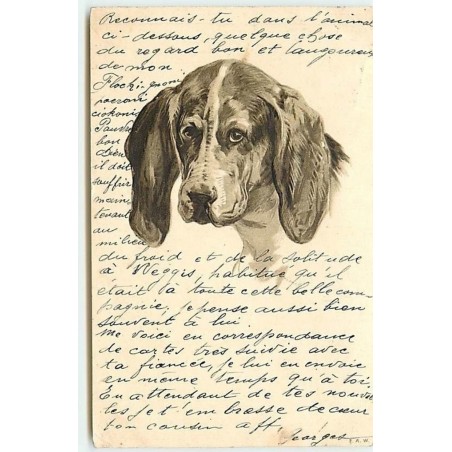 Reconnais-tu dans l'animal
ci-dessous, quelque chose
du regard bon et langoureux
de mon
Flocki-gnoni
ciokonis
bon
il doit
souffrir
main
tenant
au
milieu
du froid et de la solitude
à Weggis, habitué qu'il
était là à toute cette belle com-
pagnie, je pense aussi bien
souvent à lui.
Me voici en correspondance
de cartes très suivie avec
ta fiancée, je lui en envoie
en même temps qu'à toi,
En attendant de tes nouvel
les je t'embrasse de cœur
ton cousin aff.
Georges